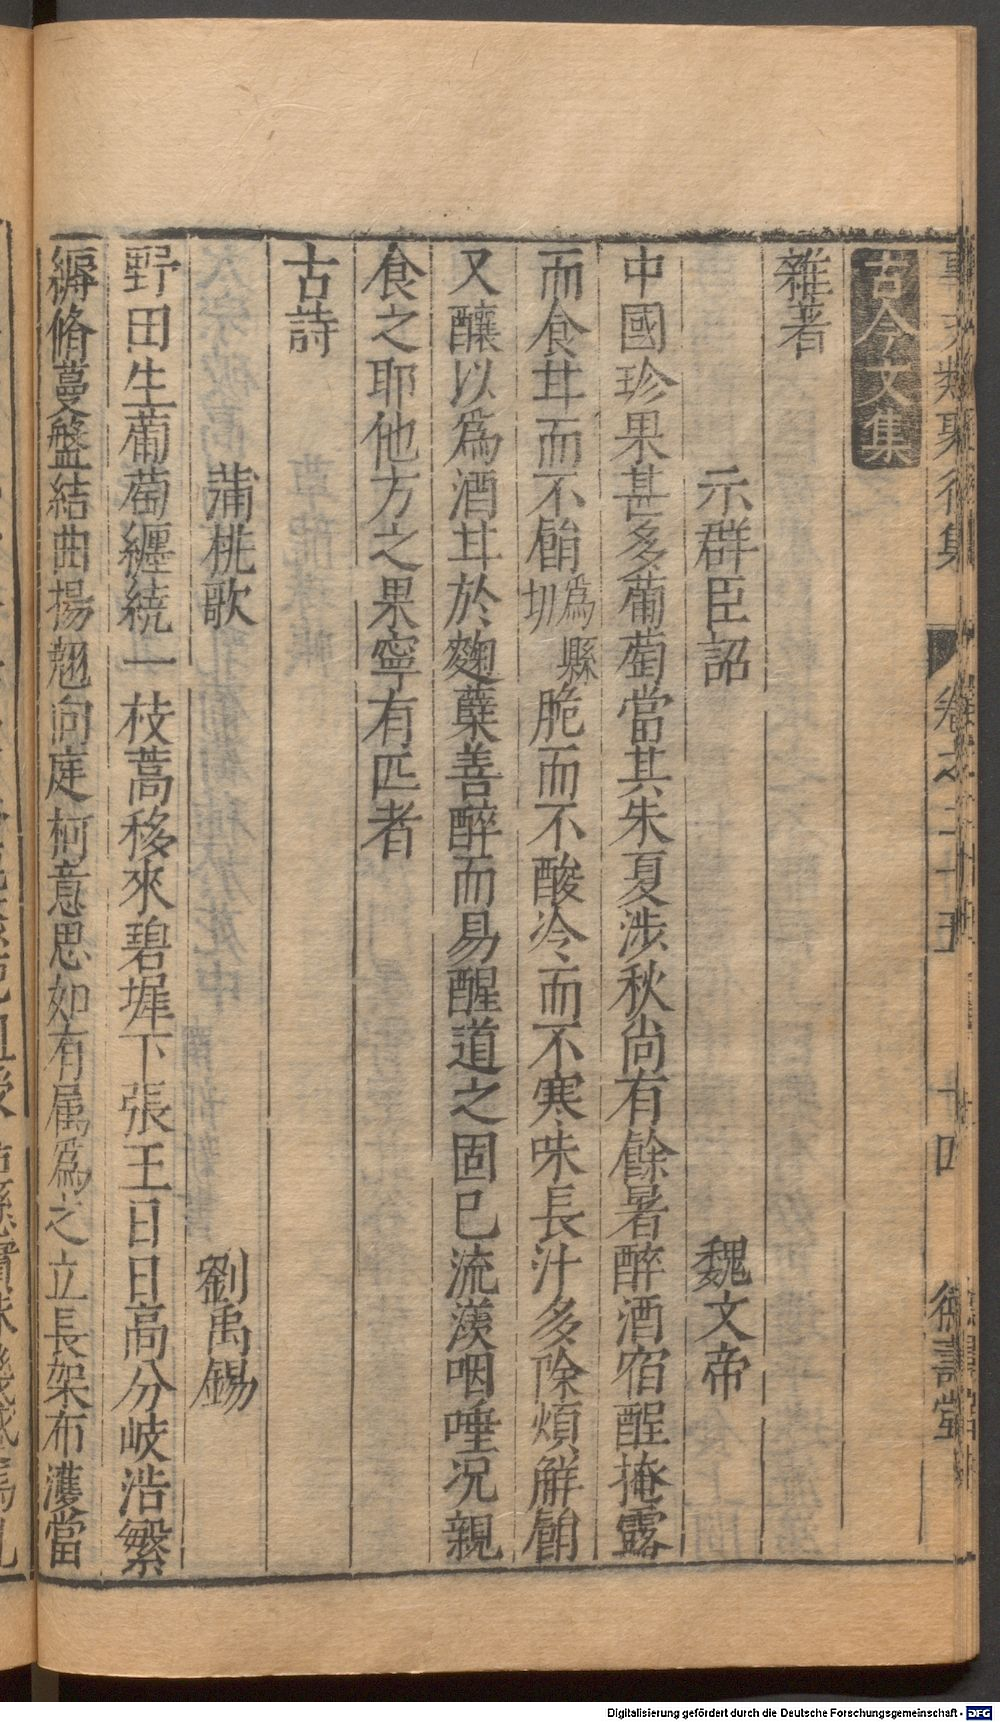 古今文集
雜著
示群臣詔 魏文帝
中國珍果甚多葡萄當其朱夏涉秋尚有餘暑醉酒宿酲掩露
而食甘而不䬼為縣切脆而不酸冷而不寒味長汁多除煩解䬼
又釀以為酒甘於麴蘗善醉而易醒道之固已流漾咽唾况親
食之耶他方之果寧有匹者
古詩
蒲桃歌 劉禹錫
野田生葡萄纏繞一枝蒿移來碧墀下張王日日高分岐浩繁
縟脩蔓盤結曲揚翹向庭柯意思如有属為之立長架布濩當
卷之二十五 十四 德壽堂
Digitalisierung gefördert durch die Deutsche Forschungsgemeinschaft - DFG